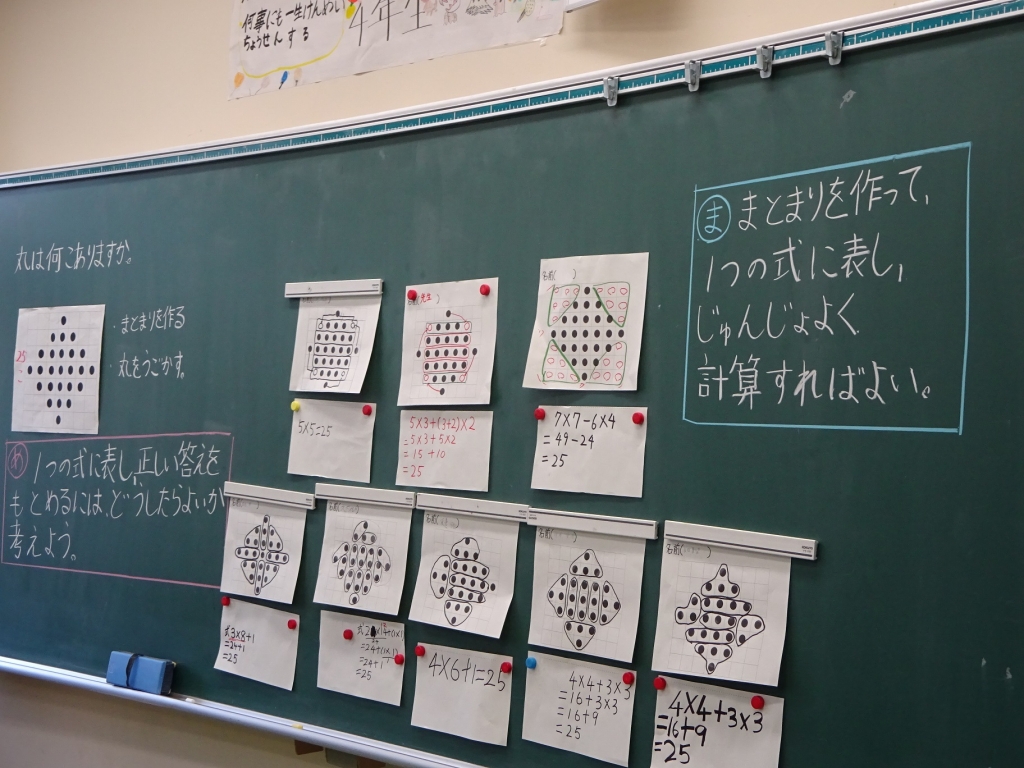 何事にも一生けんめい
ちょうせんする
4年生
丸は何こありますか。
25
・まとまりを作る
・丸をうごかす。
め 1つの式に表し正しい答えを
もとめるには、どうしたらよいか
考えよう。
5×5=25
名前(先生)
5×3+(3+2)×2
=5×3+5×2
=15+10
=25
名前( )
7×7-6×4
=49-24
=25
ま まとまりを作って、
1つの式に表し、
じゅんじょよく
計算すればよい。
式3×8+1
=24+1
=25
=24+(1×1)
=24+1
=25
名前(
4×6+1=25
名前(
4×4+3×3
=16+3×3
=16+9
=25
名前( )
4×4+3×3
=16+9
=25